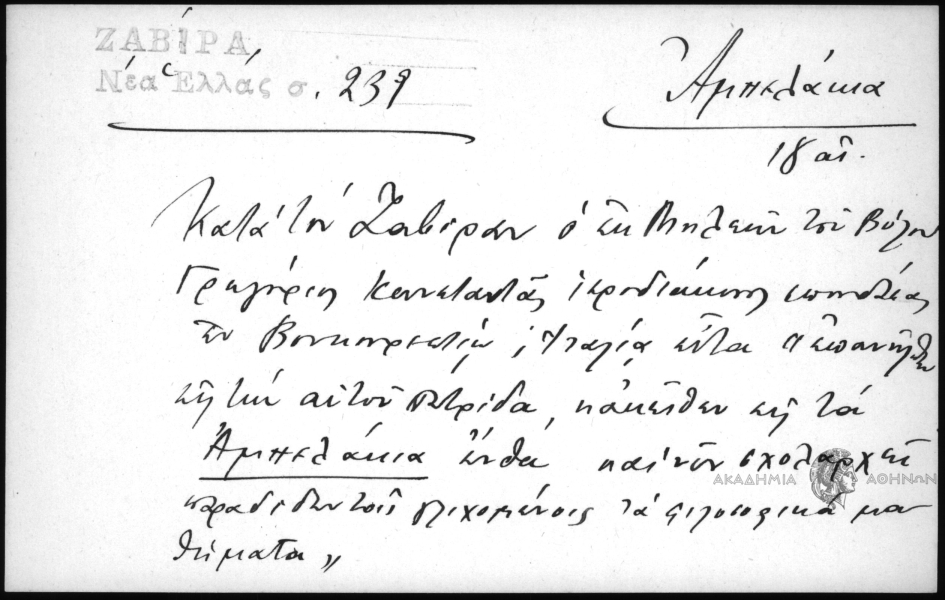 ΖΑΒΙΡΑ
Νέα Ἑλλάς σ. 239
Ἀμπελάκια
18 αι.
Κατά τόν Ζαβίραν ὁ ἐκ Μηλεῶν τοῦ Βόλου
Γρηγόριος Κωνσταντᾶς ἱεροδιάκονος σπουδάσας
ἐν Βουκουρεστίῳ, Ἰταλίᾳ εἶτα ἐπανῆλθεν
εἰς τήν αὐτοῦ πατρίδα, κἀκεῖθεν εἰς τά
Ἀμπελάκια ἔνθα καί νῦν σχολαρχεῖ
παραδίδων τοῖς τά φιλοσοφικά μα
θήματα „
ΑΚΑΔΗΜΙΑ ΑΘΗΝΩΝ